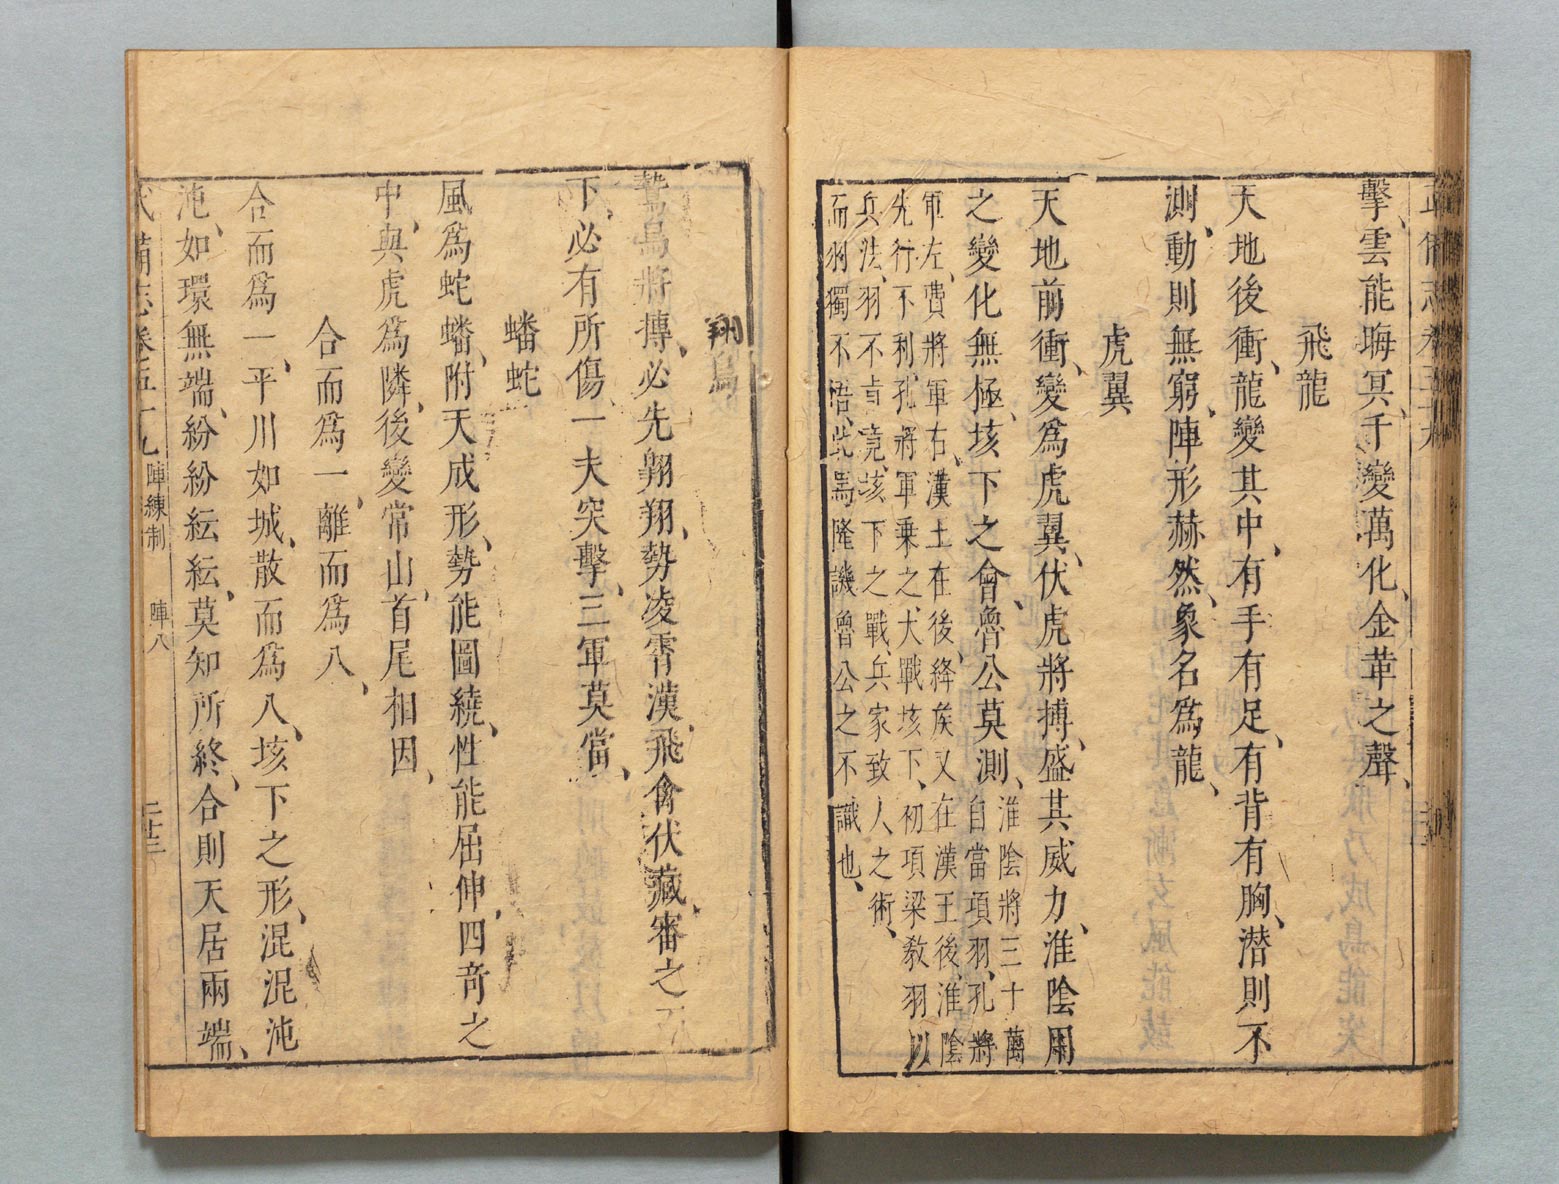 擊、雲能晦冥、千變萬化、金革之聲、
飛龍
天地後衝、龍變其中、有手有足、有背有胸、潜則不
測、動則無窮、陣形赫然、象名為龍、
虎翼
天地前衝、變為虎翼、伏虎將搏、盛其威力、淮陰用
之變化無極、垓下之會、魯公莫測、
淮陰將三十萬
自當項羽、孔將
軍左、費將軍右、漢王在後、絳侯又在漢王後、淮陰
先行不利、孔將軍乘之、大戰垓下、初項梁敎羽以
兵法、羽不肯竟、垓下之戰、兵家致人之術、
而羽獨不悟、此馬隆譏魯公之不識也、
翔鳥
鷙鳥將搏、必先翱翔、勢凌霄漢、飛禽伏藏、審之而
下、必有所傷、一夫突擊、三軍莫當、
蟠蛇
風為蛇蟠、附天成形、勢能圍繞、性能屈伸、四奇之
中、與虎為隣、後變常山、首尾相因、
合而為一、離而為八、
合而為一、平川如城、散而為八、垓下之形、混混沌
沌、如環無端、紛紛紜紜、莫知所終、合則天居兩端、
武備志卷五十九 陣練制 陣八 二十三